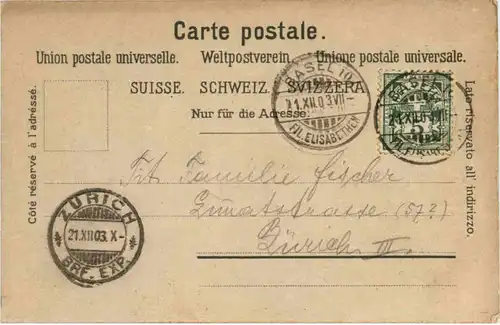 Carte postale.
Union postale universelle. Weltpostverein. Unione postale universale.
SUISSE. SCHWEIZ. SVIZZERA.
Nur für die Adresse.
Côté réservé à l'adresse.
Lato riservato all' indirizzo.
BASEL 10
21.XII.03.VII-
FIL. ELISABETHEN
BASEL
21.XII.03.VII
5
Familie Fischer
(57?)
Zürich III.
ZÜRICH
21.XII.03.X-
BRF. EXP.